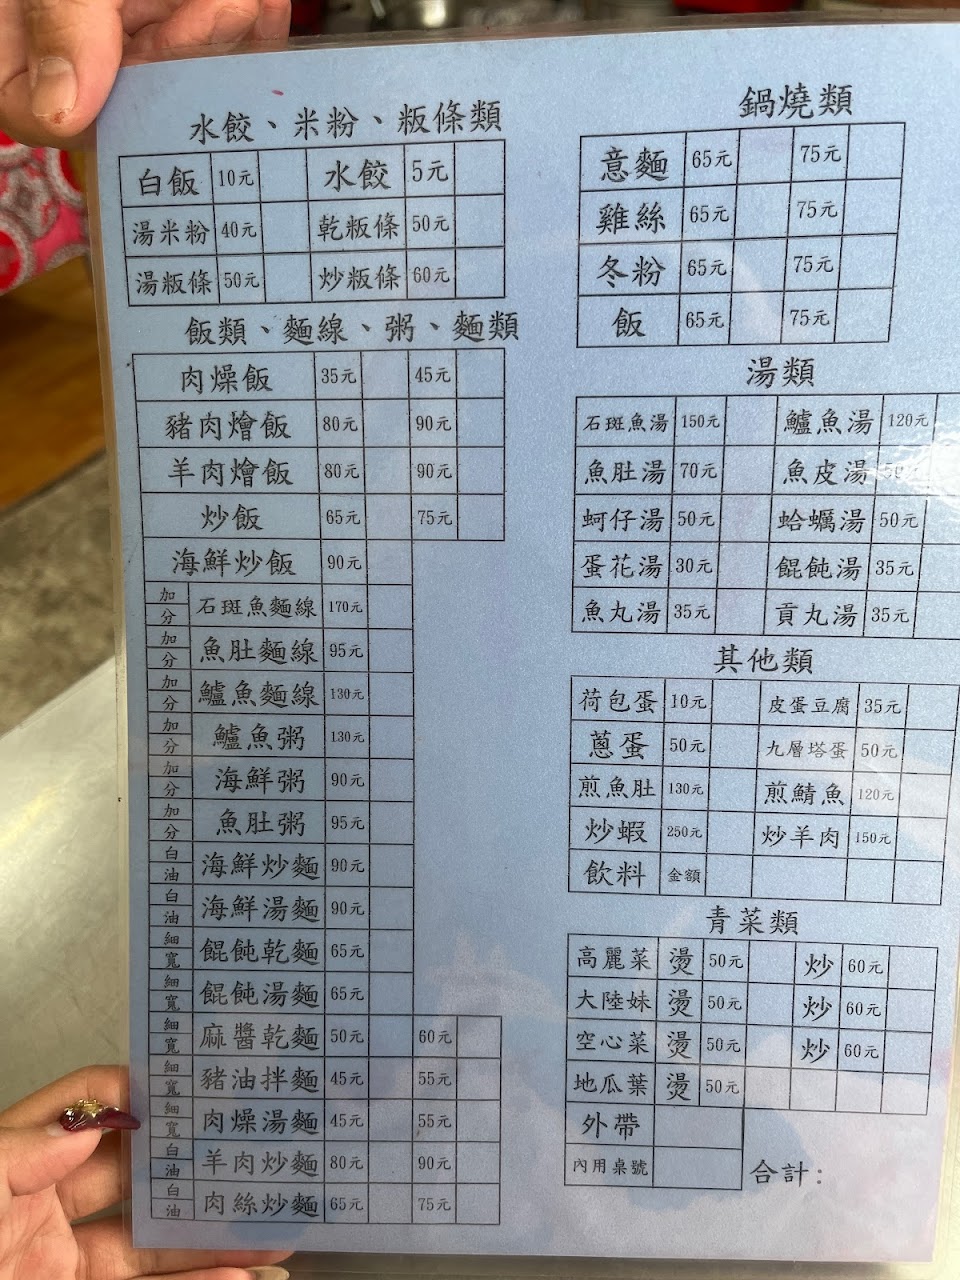 水餃、米粉、粄條類
白飯 10元 水餃 5元
湯米粉 40元 乾粄條 50元
湯粄條 50元 炒粄條 60元
飯類、麵線、粥、麵類
肉燥飯 35元 45元
豬肉燴飯 80元 90元
羊肉燴飯 80元 90元
炒飯 65元 75元
海鮮炒飯 90元
加分 石斑魚麵線 170元
加分 魚肚麵線 95元
加分 鱸魚麵線 130元
加分 鱸魚粥 130元
加分 海鮮粥 90元
加分 魚肚粥 95元
白油 海鮮炒麵 90元
白油 海鮮湯麵 90元
細寬 餛飩乾麵 65元
細寬 餛飩湯麵 65元
細寬 麻醬乾麵 50元 60元
細寬 豬油拌麵 45元 55元
細寬 肉燥湯麵 45元 55元
白油 羊肉炒麵 80元 90元
白油 肉絲炒麵 65元 75元
鍋燒類
意麵 65元 75元
雞絲 65元 75元
冬粉 65元 75元
飯 65元 75元
湯類
石斑魚湯 150元 鱸魚湯 120元
魚肚湯 70元 魚皮湯 50元
蚵仔湯 50元 蛤蠣湯 50元
蛋花湯 30元 餛飩湯 35元
魚丸湯 35元 貢丸湯 35元
其他類
荷包蛋 10元 皮蛋豆腐 35元
蔥蛋 50元 九層塔蛋 50元
煎魚肚 130元 煎鯖魚 120元
炒蝦 250元 炒羊肉 150元
飲料 金額
青菜類
高麗菜 燙 50元 炒 60元
大陸妹 燙 50元 炒 60元
空心菜 燙 50元 炒 60元
地瓜葉 燙 50元
外帶
內用桌號
合計: